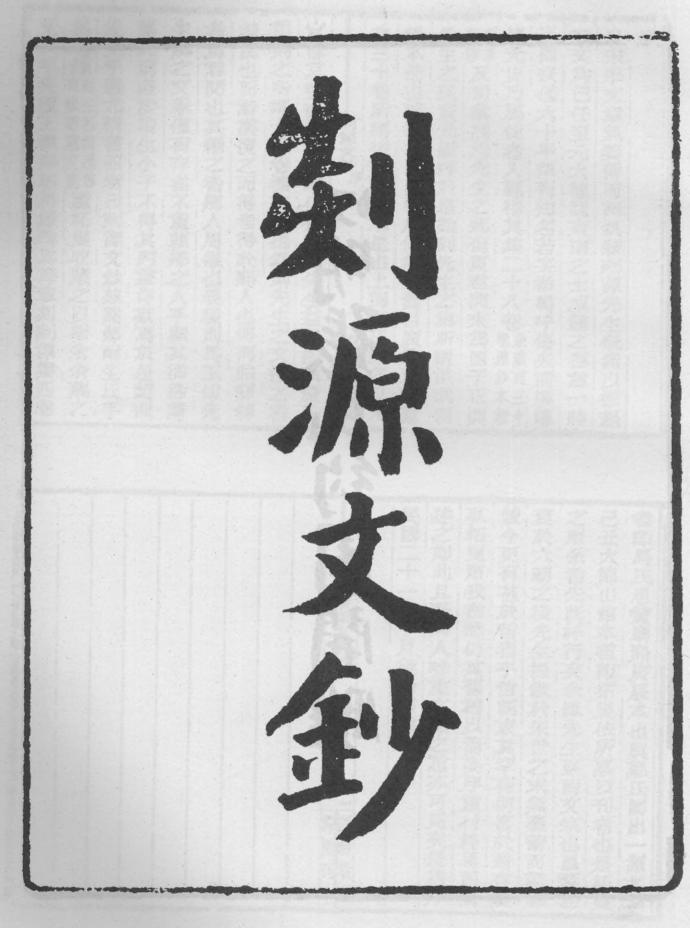 剡源文鈔